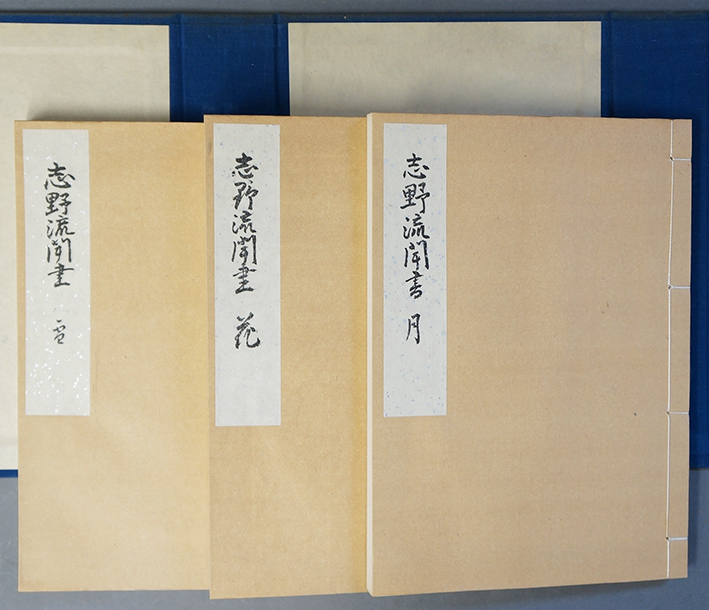 志野流聞書 月
志野流聞書 花
志野流聞書 雪